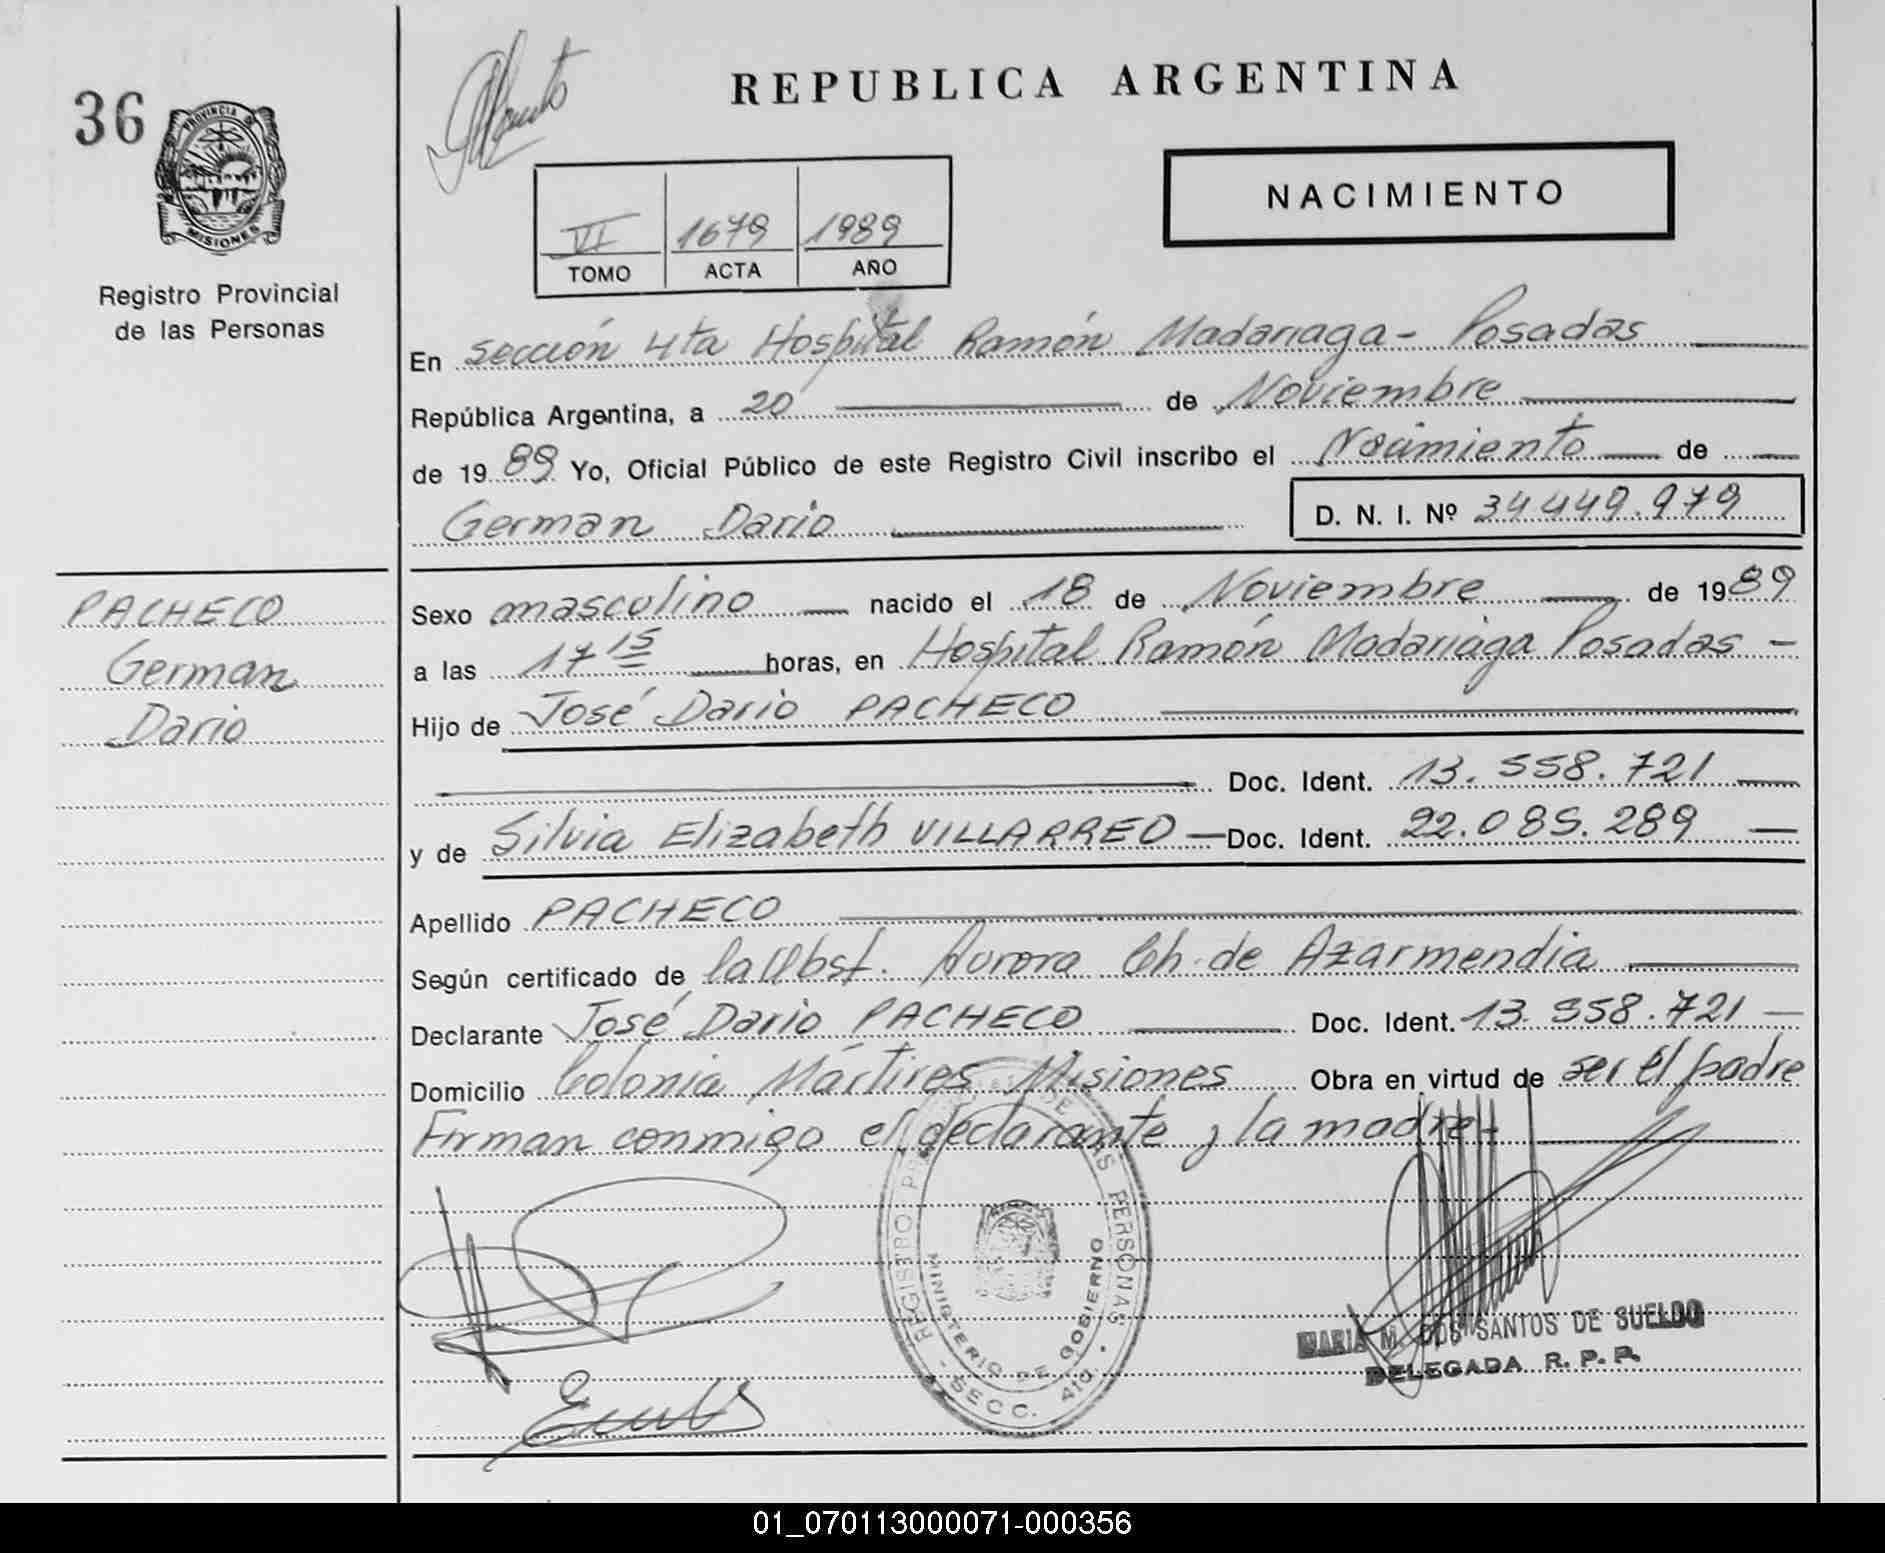 36
PROVINCIA DE
MISIONES
Registro Provincial
de las Personas
REPUBLICA ARGENTINA
NACIMIENTO
VI 1679 1989
TOMO ACTA AÑO
En Sección 4ta Hospital Ramón Madariaga - Posadas
República Argentina, a 20 de Noviembre
de 19 89 Yo, Oficial Público de este Registro Civil inscribo el Nacimiento de
German Dario D. N. I. Nº 34449.979
PACHECO
German
Dario
Sexo masculino nacido el 18 de Noviembre de 1989
a las 17 15 horas, en Hospital Ramón Madariaga Posadas -
Hijo de José Dario PACHECO
Doc. Ident. 13.558.721
y de Silvia Elizabeth VILLARREO Doc. Ident. 22.085.289
Apellido PACHECO
Según certificado de la Obst. Aurora Ch. de Azarmendia
Declarante José Dario PACHECO Doc. Ident. 13.558.721
Domicilio Colonia Mártires Misiones Obra en virtud de ser el padre
Firman conmigo el declarante y la madre-
REGISTRO DE LAS PERSONAS
MINISTERIO DE GOBIERNO
- SECC. 4ta. -
MARIA M. DOS SANTOS DE SUELDO
DELEGADA R. P. P.
01_070113000071-000356